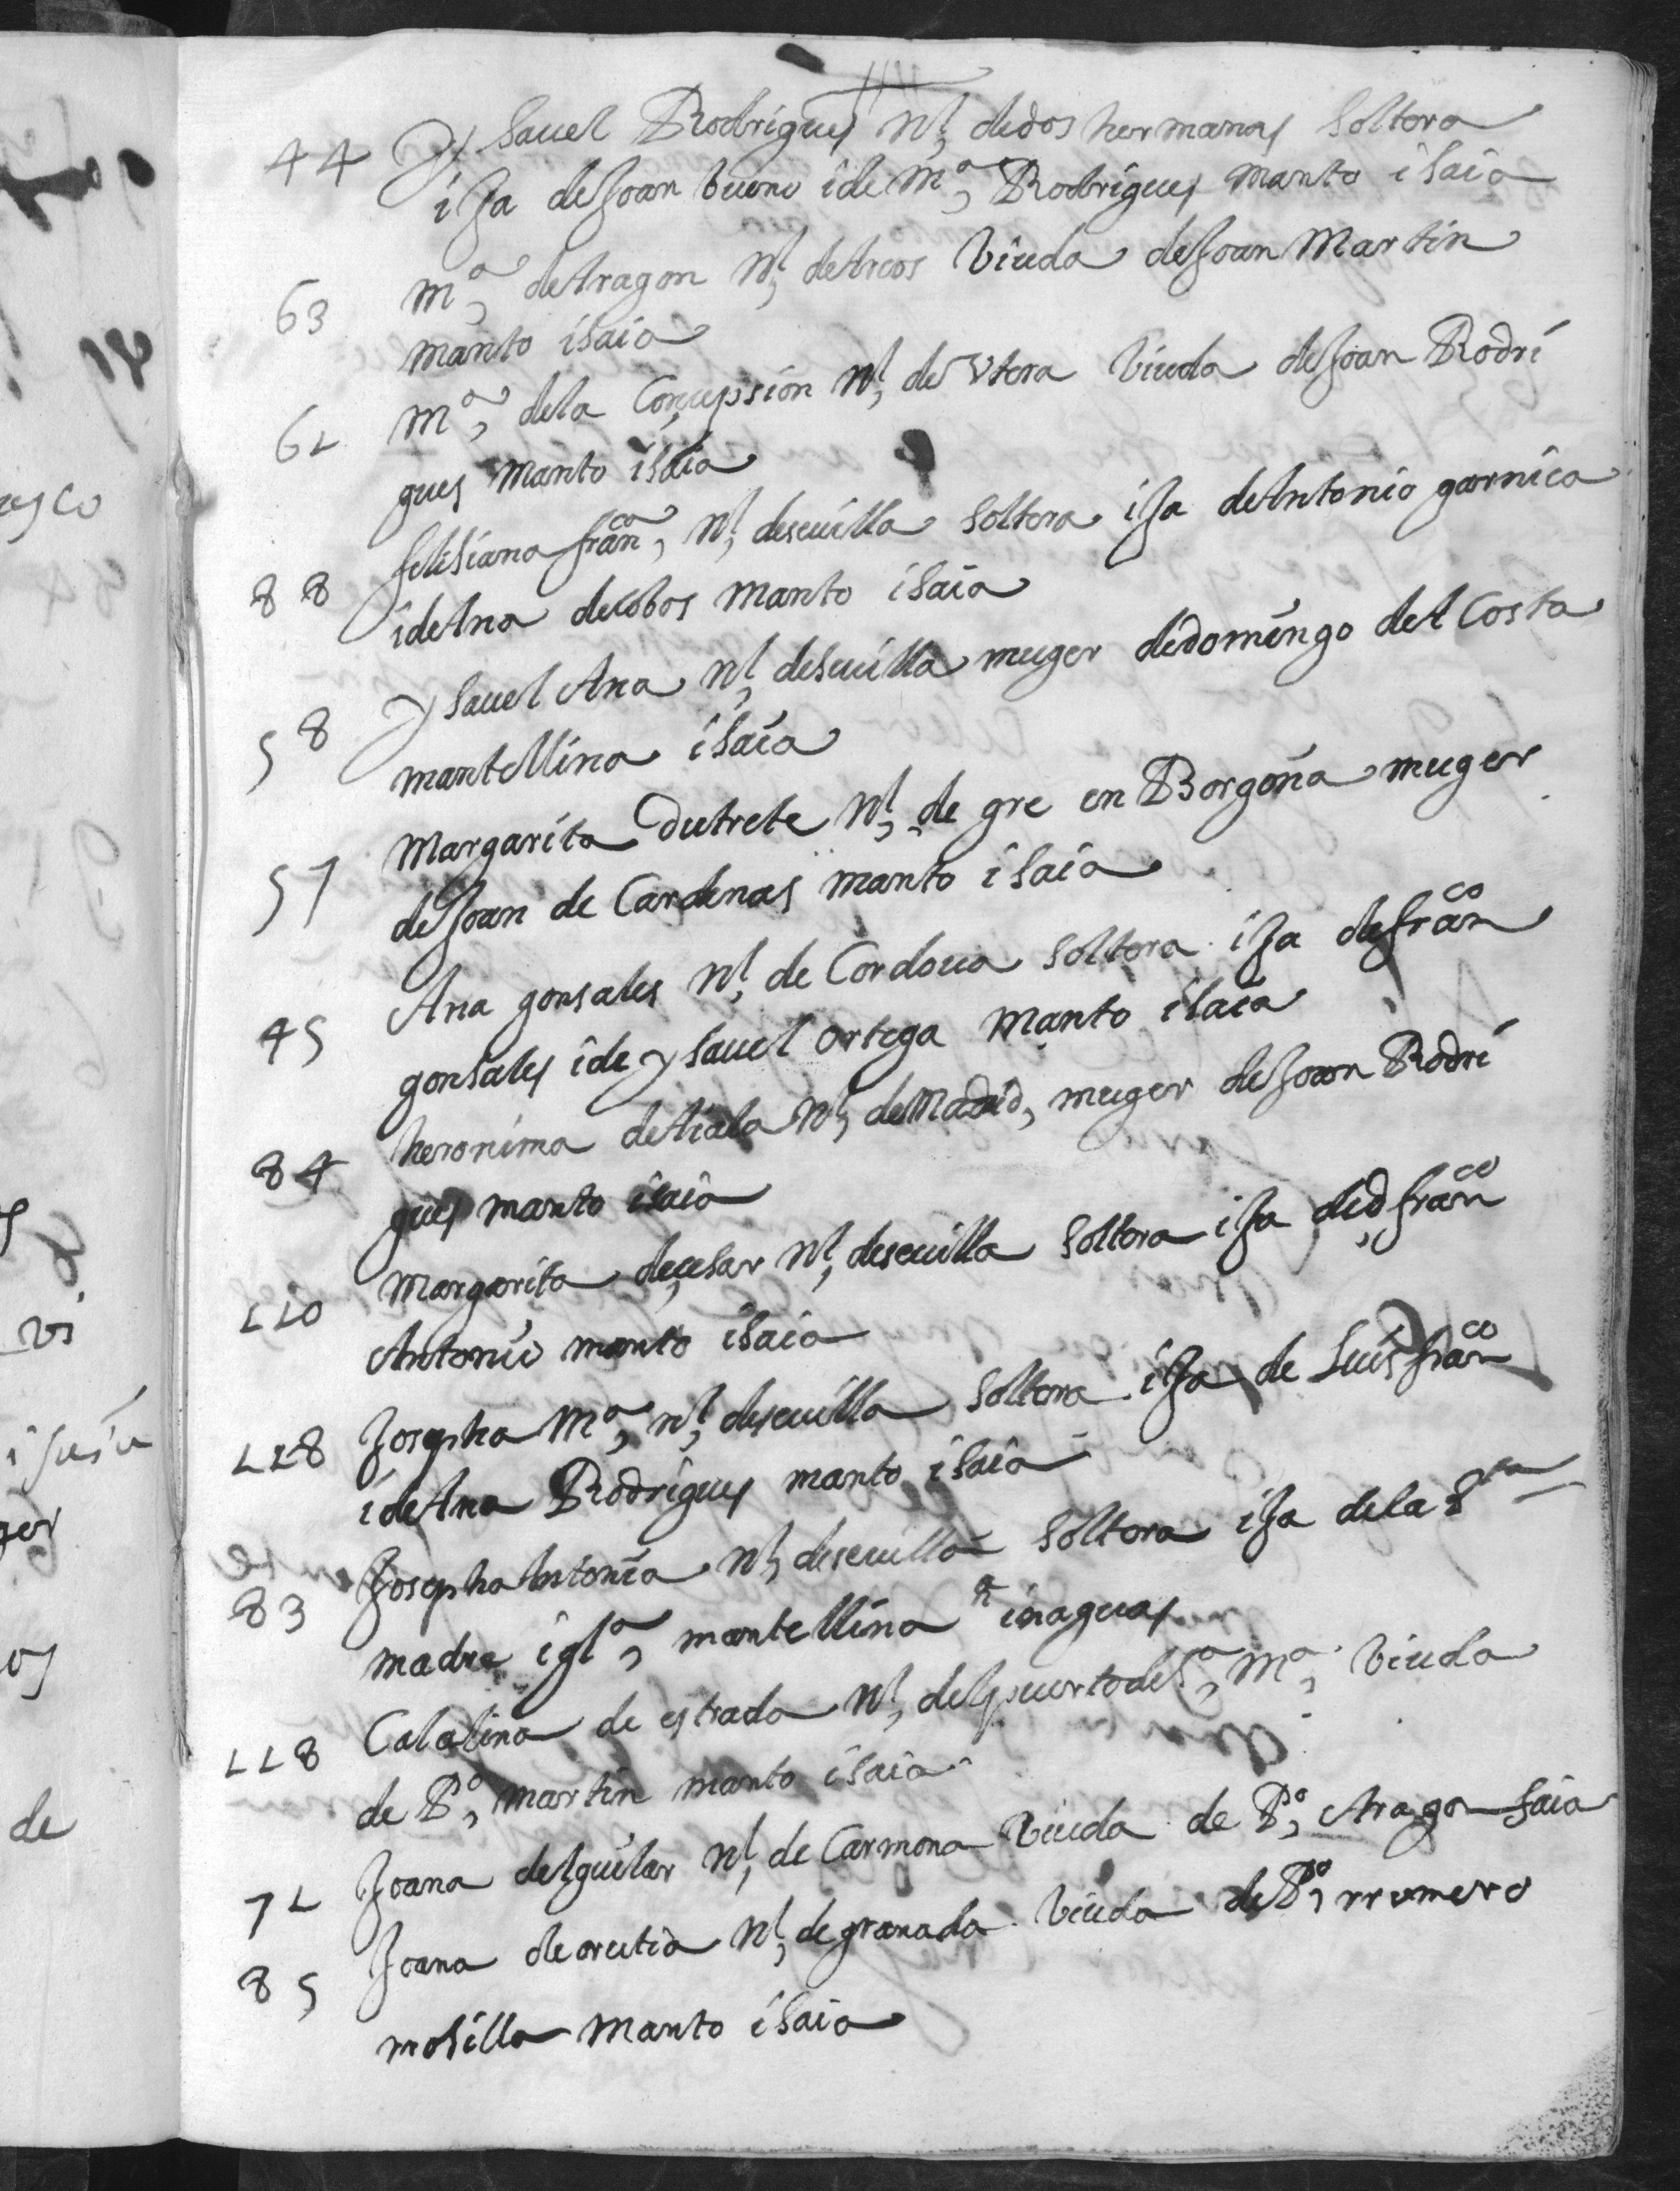 44 Ysauel Rodrigues Nl, de dos hermanas soltera
ija de Joan bueno i de Mª, Rodrigues manto i saia
63 Mª, de Aragon Nl, de Arcos biuda de Joan Martin
manto i saia
61 Mª, de la Conçepsion Nl, de Vtera biuda de Joan Rodri
gues manto i saia
88 felisiana franca, Nl, de seuilla soltera ija de Antonio garnica
i de Ana de cobos manto i saia
58 Ysauel Ana Nl, de seuilla muger de domingo de A Costa
mantellina i saia
57 Margarita Dutrete Nl, de gre en Borgoña muger
de Joan de Cardenas manto i saia
45 Ana gonsales Nl, de Cordoua soltera ija de franco
gonsales i de ysauel ortega manto i saia
84 heronima de Aiala Nl, de Madrid, muger de Joan Rodri
gues manto i saia
110 Margarita de çesar Nl, de seuilla soltera ija de d franco
Antonio manto i saia
118 Josepha Mª, Nl, de seuilla soltera ija de Luis franco
i de Ana Rodrigues manto i saia
83 Josepha Antonia Nl, de seuilla soltera ija de la Sta
madre iglª, mantellina inaguas
118 Catalina de estrada Nl, del puerto de Sª, Mª, biuda
de Pº, martin manto i saia
71 Joana de Aguilar Nl, de Carmona biuda de Pº, Aragon saia
85 Joana de orutia Nl, de granada biuda de Pº, rromero
mosilla manto i saia
de